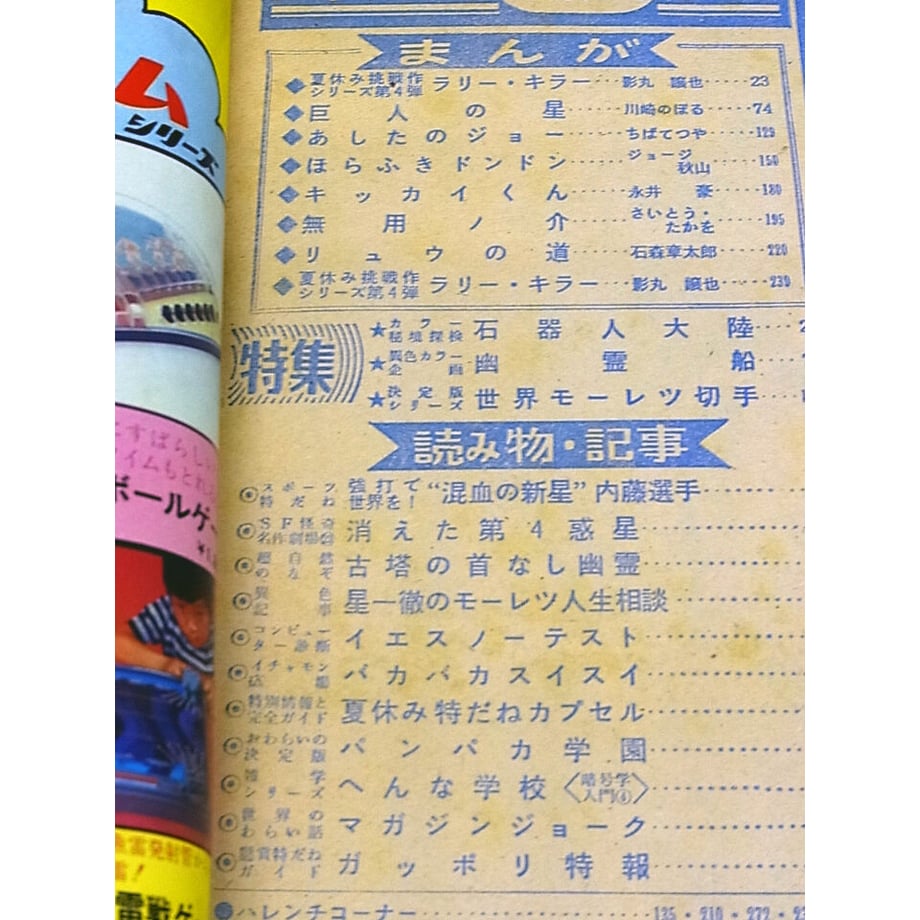 まんが
◆夏休み挑戦作シリーズ第4弾 ラリー・キラー……影丸 譲也……23
◆巨人の星……川崎のぼる……74
◆あしたのジョー……ちばてつや……129
◆ほらふきドンドン……ジョージ秋山……150
◆キッカイくん……永井 豪……180
◆無用ノ介……さいとう・たかを……195
◆リュウの道……石森章太郎……220
◆夏休み挑戦作シリーズ第4弾 ラリー・キラー……影丸 譲也……239
特集
★カラー秘境探検 石器人大陸……2
★異色カラー企画 幽霊船……
★決定版シリーズ 世界モーレツ切手……
読み物・記事
◉スポーツ特だね 強打で世界を!“混血の新星”内藤選手……
◉SF怪奇名作劇場 消えた第4惑星……
◉超自然のなぞ 古塔の首なし幽霊……
◉異色記事 星一徹のモーレツ人生相談……
◉コンピューター診断 イエスノーテスト……
◉イチャモン広場 バカバカスイスイ……
◉特別情報と完全ガイド 夏休み特だねカプセル……
◉おわらいの決定版 パンパカ学園……
◉雑学シリーズ へんな学校〈暗号学入門④〉……
◉世界のわらい話 マガジンジョーク……
◉懸賞特だねガイド ガッポリ特報……
●ハレンチコーナー……135・210・272・2
ム
シリーズ
こすばらしい
タイムもとれる
ボールゲー
魚雷発射管
雷戦ゲ